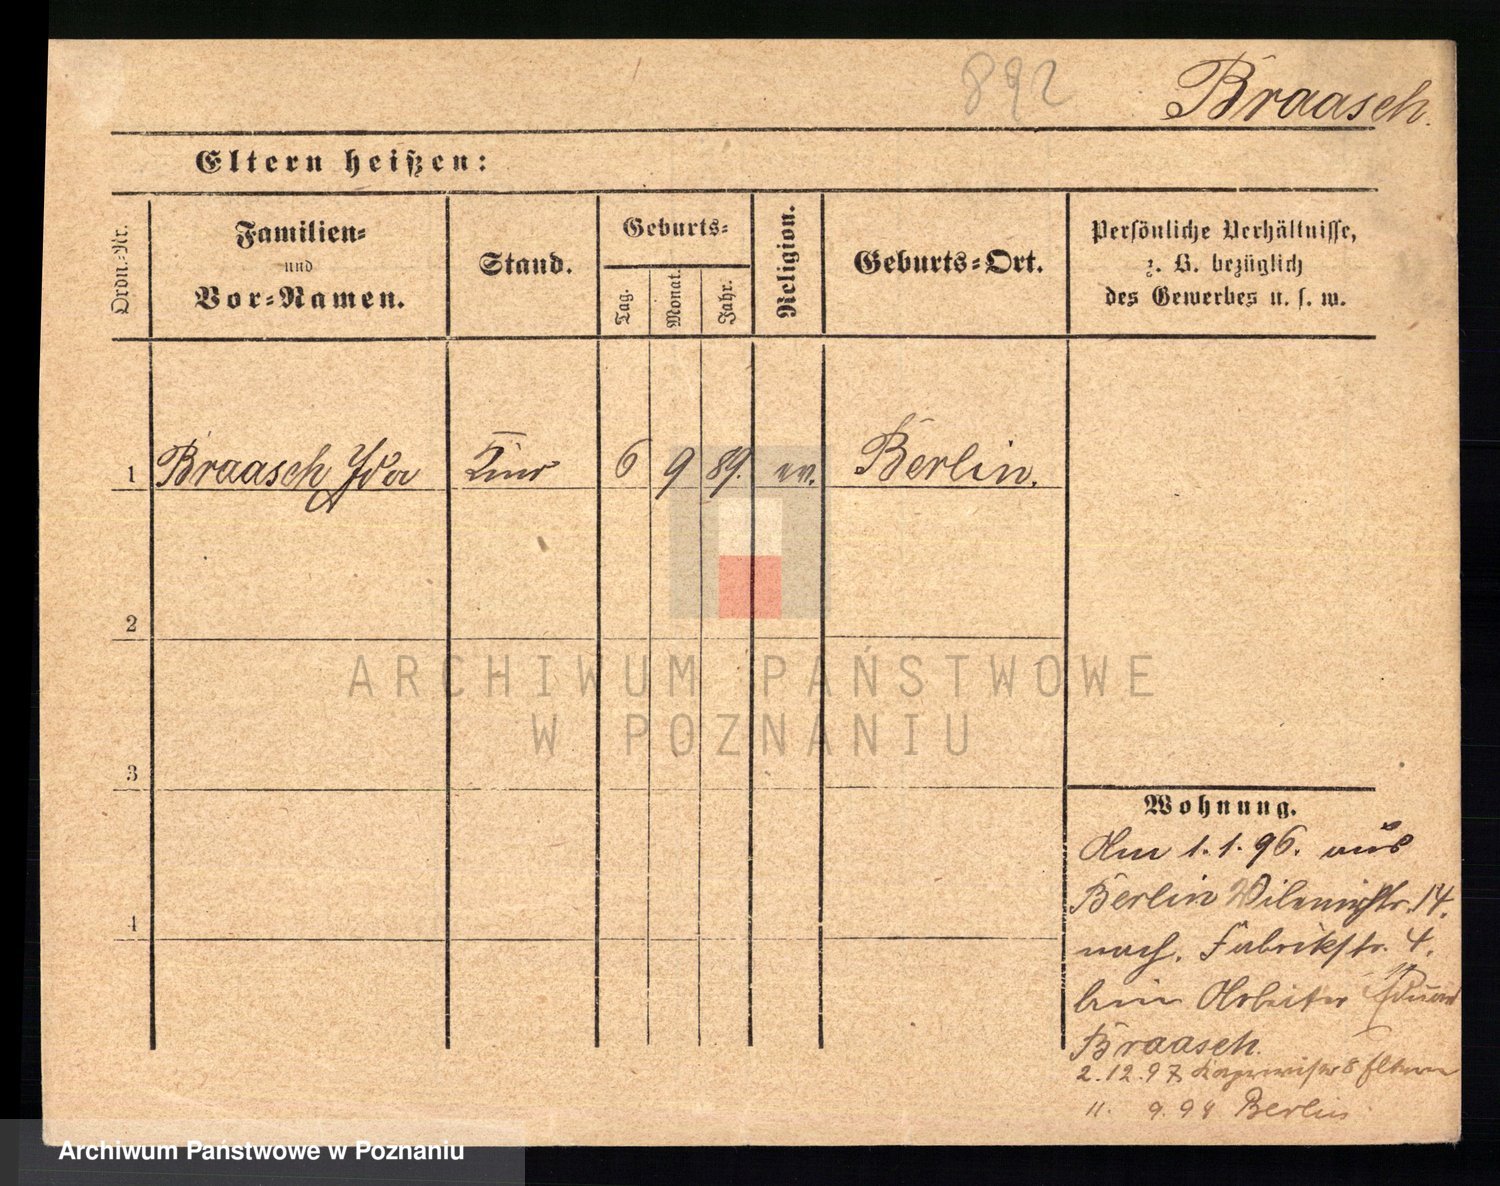 892
Braasch.
Eltern heißen:
Ordn.-Nr.
Familien-
und
Vor-Namen.
Stand.
Geburts-
Tag.
Monat.
Jahr.
Religion.
Geburts-Ort.
Persönliche Verhältnisse,
z. B. bezüglich
des Gewerbes u. s. w.
1 Braasch Ida Kind 6 9 89. ev. Berlin.
2
3
4
ARCHIWUM PAŃSTWOWE
W POZNANIU
Wohnung.
Am 1.1.96. aus
Berlin 14.
nach. Fabrikstr. 4.
beim Arbeiter Eduard
Braasch.
2.12.97 8 Eltern
11. 9.98 Berlin
Archiwum Państwowe w Poznaniu